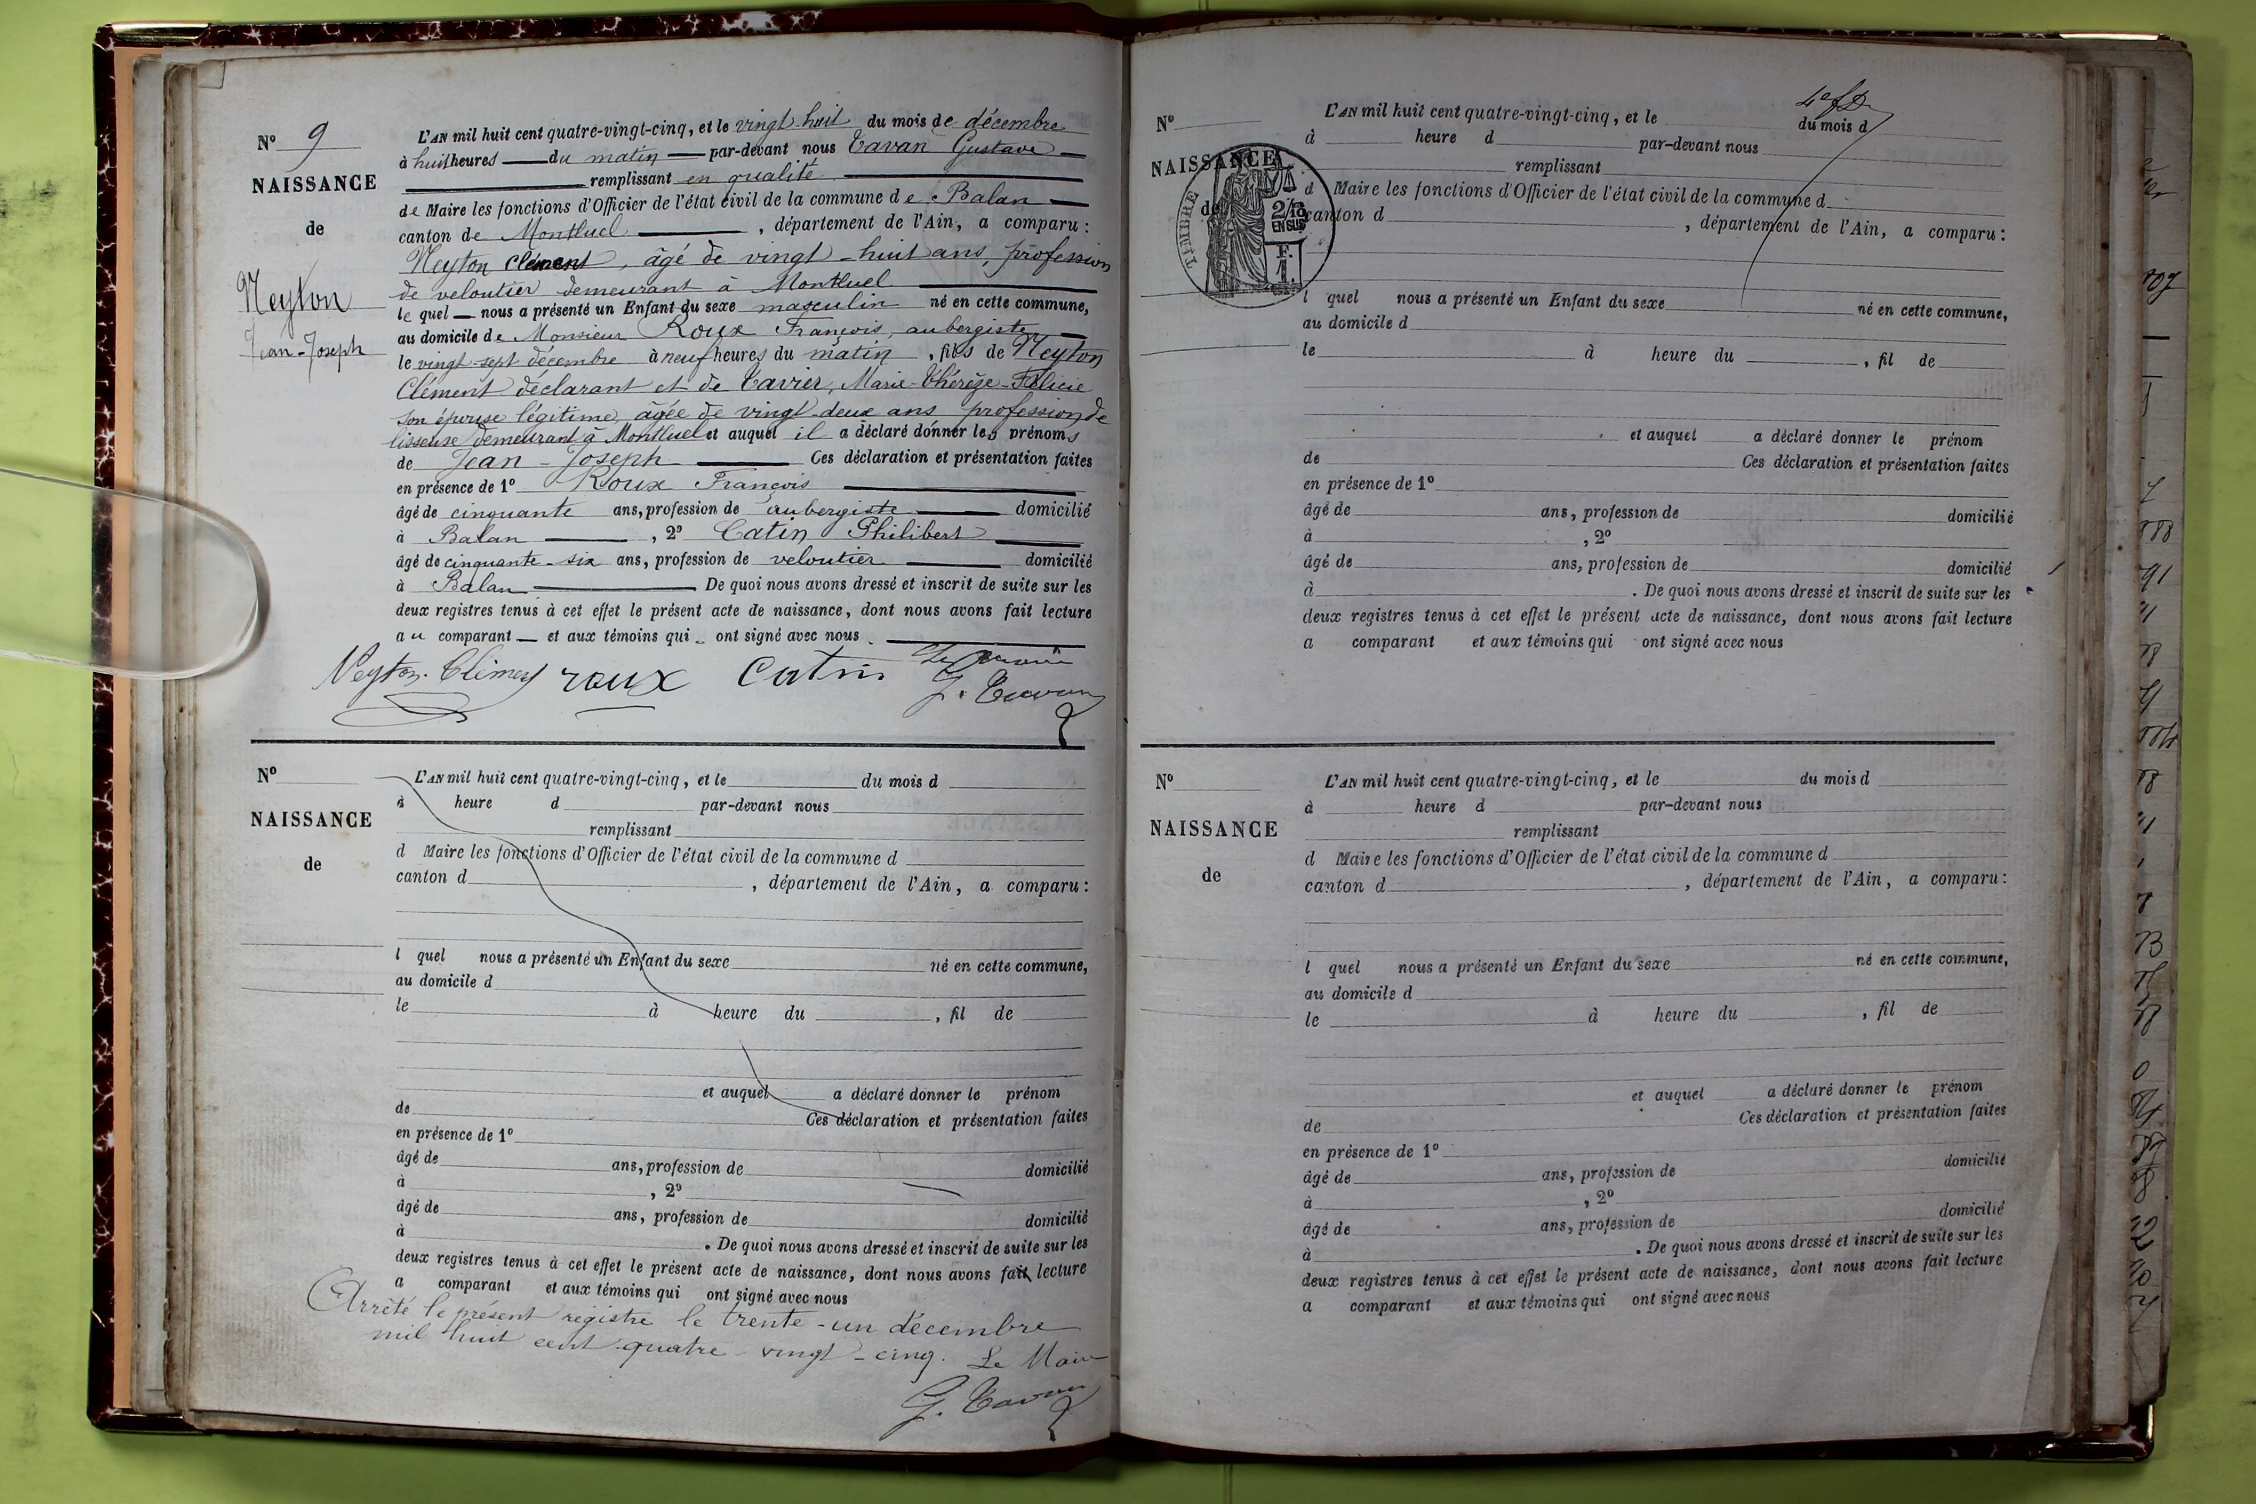 Nº 9
NAISSANCE
de
Neyton
Jean-Joseph
L'AN mil huit cent quatre-vingt-cinq, et le vingt huit du mois de décembre
à huit heures du matin par-devant nous Tavan Gustave
remplissant en qualité
de Maire les fonctions d'Officier de l'état civil de la commune de Balan
canton de Montluel, département de l'Ain, a comparu :
Neyton Clément, âgé de vingt-huit ans, profession
de veloutier demeurant à Montluel
le quel nous a présenté un Enfant du sexe masculin né en cette commune,
au domicile de Monsieur Roux François, aubergiste
le vingt-sept décembre à neuf heures du matin, fils de Neyton
Clément déclarant et de Tavier, Marie-Thérèze-Félicie
son épouse légitime, âgée de vingt-deux ans profession de
lisseuse demeurant à Montluel et auquel il a déclaré donner les prénoms
de Jean-Joseph Ces déclaration et présentation faites
en présence de 1º Roux François
âgé de cinquante ans, profession de aubergiste domicilié
à Balan, 2º Catin Philibert
âgé de cinquante-six ans, profession de veloutier domicilié
à Balan De quoi nous avons dressé et inscrit de suite sur les
deux registres tenus à cet effet le présent acte de naissance, dont nous avons fait lecture
au comparant et aux témoins qui ont signé avec nous.
Neyton Clément roux Catin Le maire
G. Tavan
Nº
NAISSANCE
de
L'AN mil huit cent quatre-vingt-cinq, et le du mois d
à heure d par-devant nous
remplissant
d Maire les fonctions d'Officier de l'état civil de la commune d
canton d , département de l'Ain, a comparu :
l quel nous a présenté un Enfant du sexe né en cette commune,
au domicile d
le à heure du , fil de
et auquel a déclaré donner le prénom
de Ces déclaration et présentation faites
en présence de 1º
âgé de ans, profession de domicilié
à , 2º
âgé de ans, profession de domicilié
à . De quoi nous avons dressé et inscrit de suite sur les
deux registres tenus à cet effet le présent acte de naissance, dont nous avons fait lecture
a comparant et aux témoins qui ont signé avec nous
Arrêté le présent registre le trente-un décembre
mil huit cent quatre-vingt-cinq. Le Maire
G. Tavan
Nº
NAISSANCE
de
TIMBRE
2/10
EN SUS
F.
1.
L'AN mil huit cent quatre-vingt-cinq, et le du mois d
à heure d par-devant nous
remplissant
d Maire les fonctions d'Officier de l'état civil de la commune d
canton d , département de l'Ain, a comparu :
l quel nous a présenté un Enfant du sexe né en cette commune,
au domicile d
le à heure du , fil de
et auquel a déclaré donner le prénom
de Ces déclaration et présentation faites
en présence de 1º
âgé de ans, profession de domicilié
à , 2º
âgé de ans, profession de domicilié
à . De quoi nous avons dressé et inscrit de suite sur les
deux registres tenus à cet effet le présent acte de naissance, dont nous avons fait lecture
a comparant et aux témoins qui ont signé avec nous
Nº
NAISSANCE
de
L'AN mil huit cent quatre-vingt-cinq, et le du mois d
à heure d par-devant nous
remplissant
d Maire les fonctions d'Officier de l'état civil de la commune d
canton d , département de l'Ain, a comparu :
l quel nous a présenté un Enfant du sexe né en cette commune,
au domicile d
le à heure du , fil de
et auquel a déclaré donner le prénom
de Ces déclaration et présentation faites
en présence de 1º
âgé de ans, profession de domicilié
à , 2º
âgé de ans, profession de domicilié
à . De quoi nous avons dressé et inscrit de suite sur les
deux registres tenus à cet effet le présent acte de naissance, dont nous avons fait lecture
a comparant et aux témoins qui ont signé avec nous